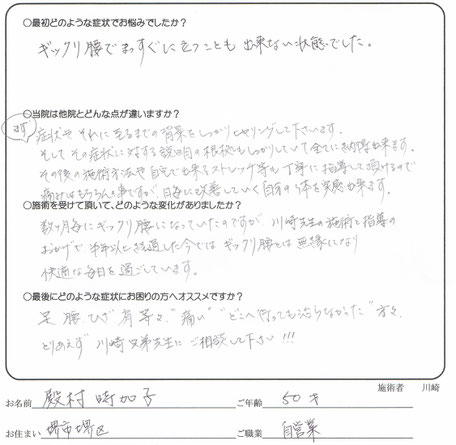 ○最初どのような症状でお悩みでしたか？
ギックリ腰でまっすぐに立つことも出来ない状態でした。
○当院は他院とどんな点が違いますか？
まず 症状や それに至るまでの背景をしっかりヒヤリングして下さいます。
そして その症状に対する説明の根拠もしっかりしていて全てに納得出来ます。
その後の施術方法や自宅で出来るストレッチ等も丁寧に指導して頂けるので
痛みはもちろんの事ですが 日毎に改善していく自分の体を実感出来ます。
○施術を受けて頂いて、どのような変化がありましたか？
数ヶ月毎にギックリ腰になっていたのですが、川崎先生の施術と指導の
おかげで 半年以上経過した今では ギックリ腰とは無縁になり
快適な毎日を過ごしています。
○最後にどのような症状にお困りの方へオススメですか？
足 腰 ひざ 肩 等々、"痛い" "どこへ行っても治らなかった" 方々、
とりあえず 川崎兄弟先生に ご相談して下さい!!!
施術者 川崎
お名前 殿村 時加子 ご年齢 50才
お住まい 堺市堺区 ご職業 自営業